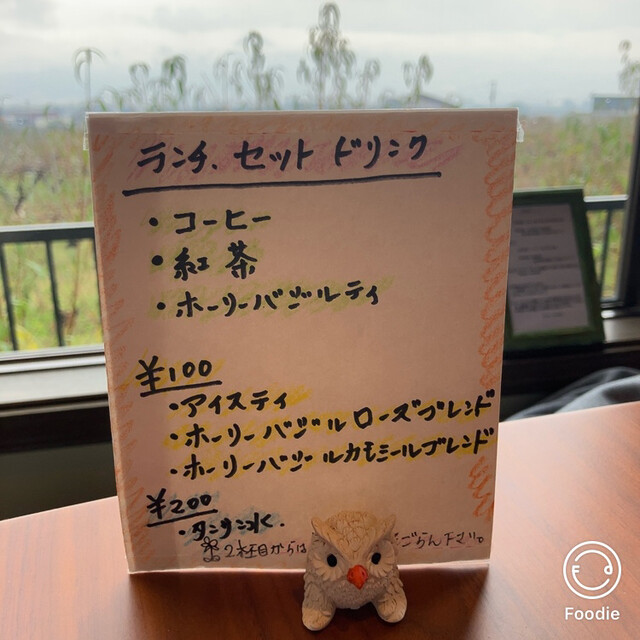 ランチ、セットドリンク
・コーヒー
・紅茶
・ホーリーバジルティ
¥100
・アイスティ
・ホーリーバジルローズブレンド
・ホーリーバジルカモミールブレンド
¥200
・タンサン水.
2杯目からは
ごらん下さい。
Foodie